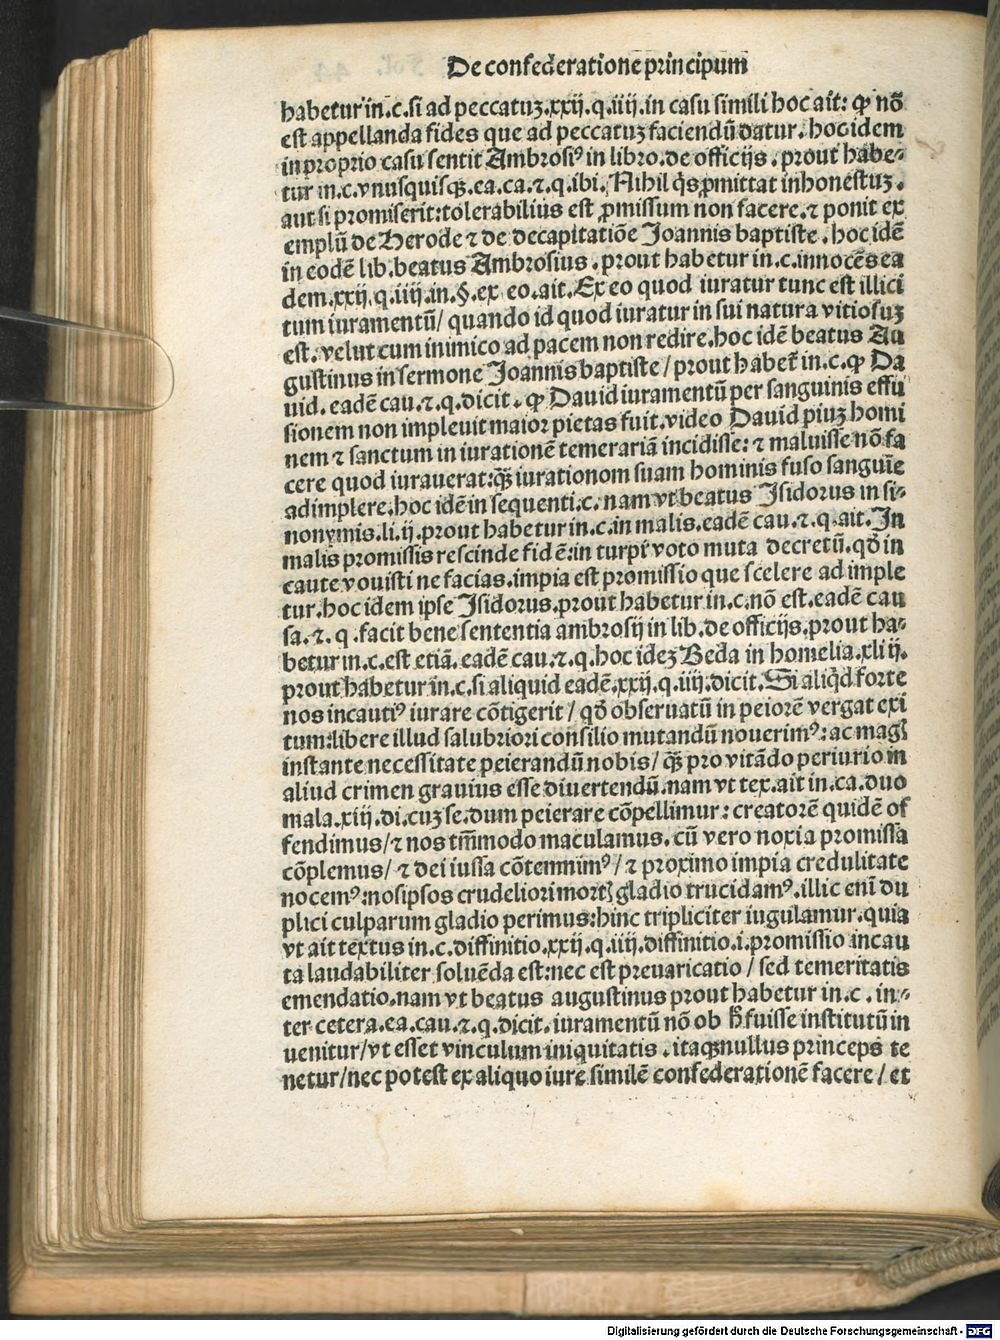 De confederatione principum̄
habetur in.c.si ad peccatuꝫ.xxij.q.iiij.in casu simili hoc ait: ꝙ nō
est appellanda fides que ad peccatuꝫ faciendū datur. hoc idem
in proprio casu sentit Ambrosiꝰ in libro.de officijs . prout habe⸗
tur in.c.vnusquisqꝫ.ea.ca.⁊.q.ibi. Nihil q̄s ꝓmittat inhonestuꝫ.
aut si promiserit:tolerabilius est ꝓmissum non facere.⁊ ponit ex
emplū de Herode ⁊ de decapitatiōe Joannis baptiste . hoc idē
in eodē lib.beatus Ambrosius . prout habetur in.c.innocēs ea
dem.xxij.q.iiij.in.§.ex eo.ait.Ex eo quod iuratur tunc est illici
tum iuramentū/ quando id quod iuratur in sui natura vitiosuꝫ
est. velut cum inimico ad pacem non redire.hoc idē beatus Au
gustinus in sermone Joannis baptiste / prout habet᷑ in.c.ꝙ Da
uid. eadē cau.⁊.q.dicit . ꝙ Dauid iuramentū per sanguinis effu
sionem non impleuit maior pietas fuit.video Dauid piuꝫ homi
nem ⁊ sanctum in iurationē temerariā incidisse: ⁊ maluisse nō fa
cere quod iurauerat:qꝫ̄ iurationom suam hominis fuso sanguīe
adimplere.hoc idē in sequenti.c. nam vt beatus Isidorus in si⸗
nonymis.li.ij.prout habetur in.c.in malis.eadē cau.⁊.q.ait.In
malis promissis rescinde fidē:in turpi voto muta decretū.qđ in
caute vouisti ne facias.impia est promissio que scelere ad imple
tur.hoc idem ipse Isidorus.prout habetur in.c.nō est.eadē cau
sa.⁊.q.facit bene sententia ambrosij in lib.de officijs.prout ha⸗
betur in.c.est etiā.eadē cau.⁊.q.hoc ideꝫ Beda in homelia.xliij.
prout habetur in.c.si aliquid eadē.xxij.q.iiij.dicit.Si aliq̄d forte
nos incautiꝰ iurare cōtigerit / qđ obseruatū in peiorē vergat exi
tum:libere illud salubriori consilio mutandū nouerimꝰ: ac magꝭ
instante necessitate peierandū nobis/ qꝫ̄ pro vitādo periurio in
aliud crimen grauius esse diuertendū.nam vt tex.ait in.ca.duo
mala.xiij.di.cuꝫ se.dum peierare cōpellimur: creatorē quidē of
fendimus/⁊ nos tm̄modo maculamus. cū vero noxia promissa
cōplemus/ ⁊ dei iussa cōtemnimꝰ/ ⁊ proximo impia credulitate
nocemꝰ:nosipsos crudeliori mortꝭ gladio trucidamꝰ.illic enī du
plici culparum gladio perimus:hinc tripliciter iugulamur.quia
vt ait textus in.c.diffinitio.xxij.q.iiij.diffinitio.i.promissio incau
ta laudabiliter soluēda est:nec est preuaricatio / sed temeritatis
emendatio.nam vt beatus augustinus prout habetur in.c . in⸗
ter cetera.ea.cau.⁊.q.dicit. iuramentū nō ob ħ fuisse institutū in
uenitur/vt esset vinculum iniquitatis . itaqꝫ nullus princeps te
netur/nec potest ex aliquo iure similē confederationē facere / et
Digitalisierung gefördert durch die Deutsche Forschungsgemeinschaft - DFG